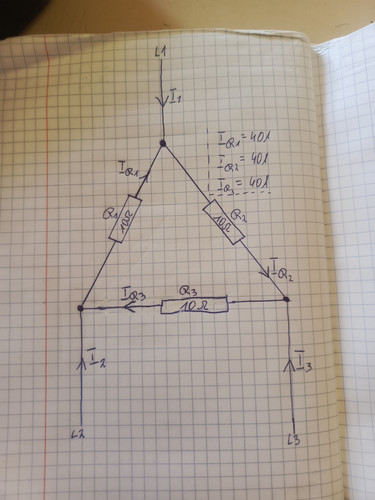 L1
I1
IQ1 = 40A
IQ2 = 40A
IQ3 = 40A
IQ1
Q1
10Ω
Q2
10Ω
IQ2
IQ3
Q3
10Ω
I2
I3
L2
L3